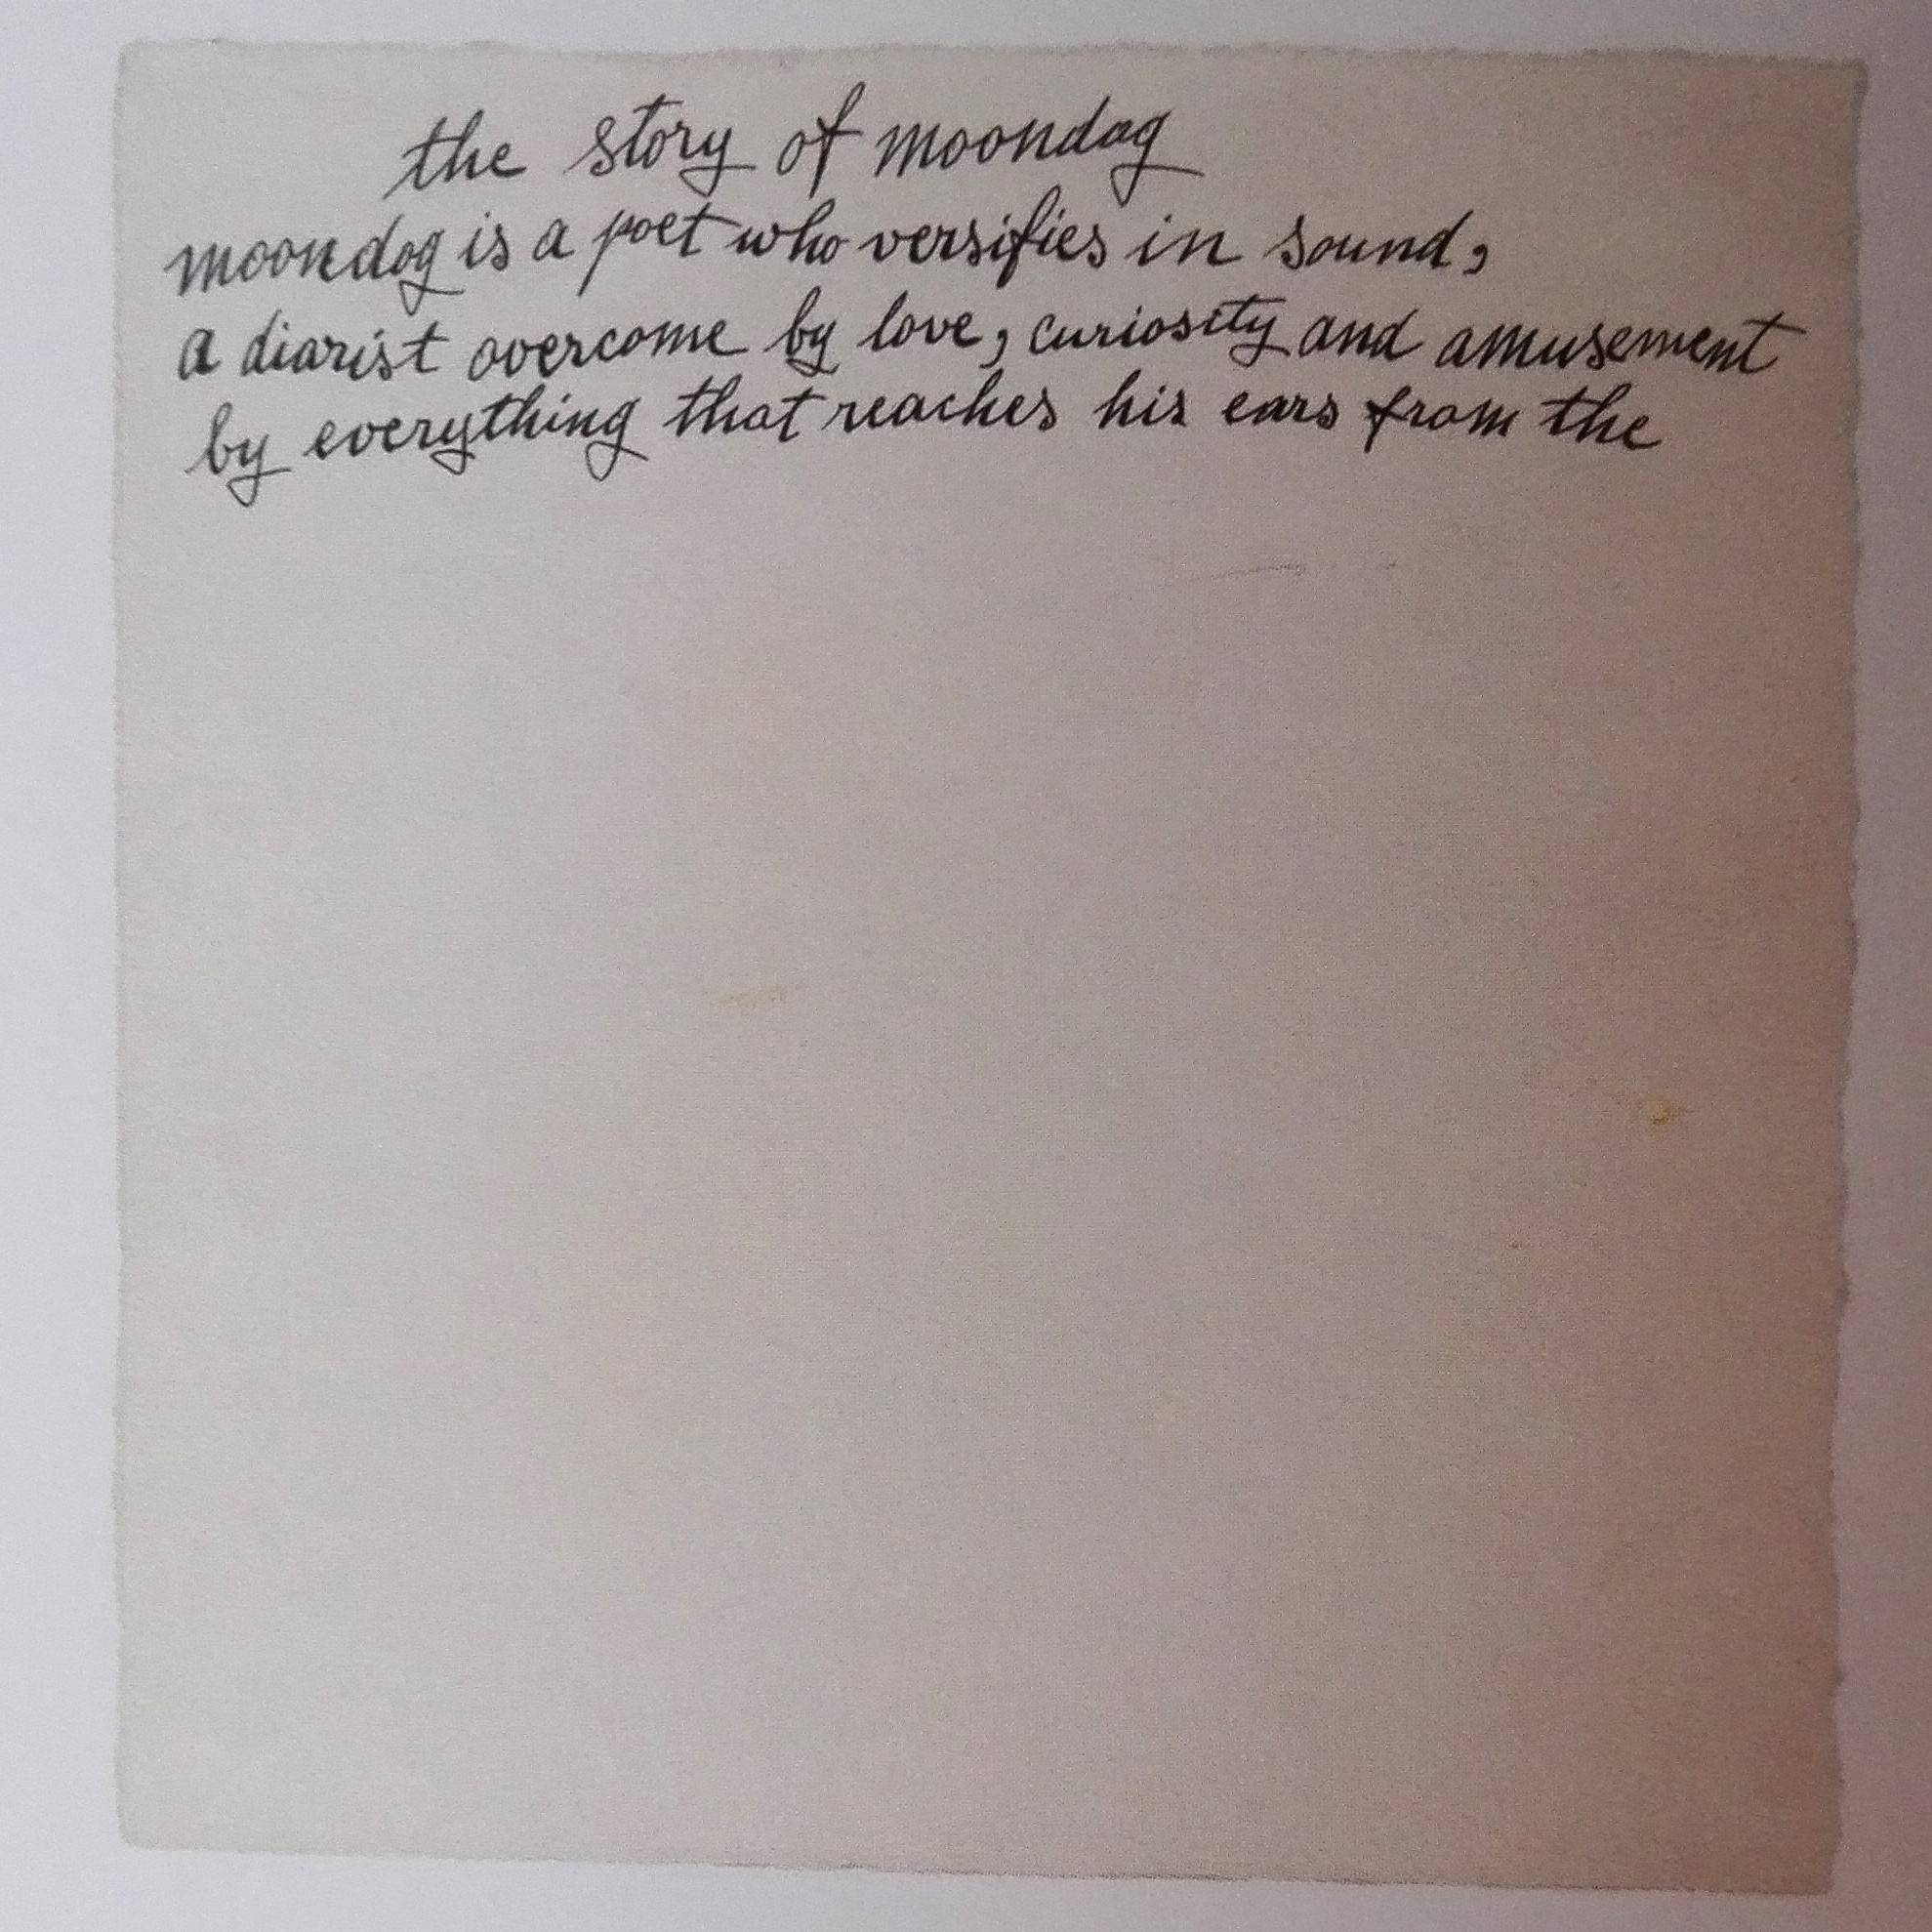 the story of moondog
moondog is a poet who versifies in sound,
a diarist overcome by love, curiosity and amusement
by everything that reaches his ears from the